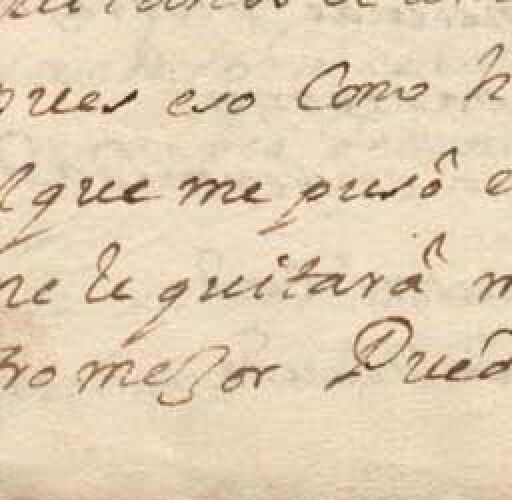 pues eso Como h
lque me pusô e
me le quitarâ m
tro mejor Pued